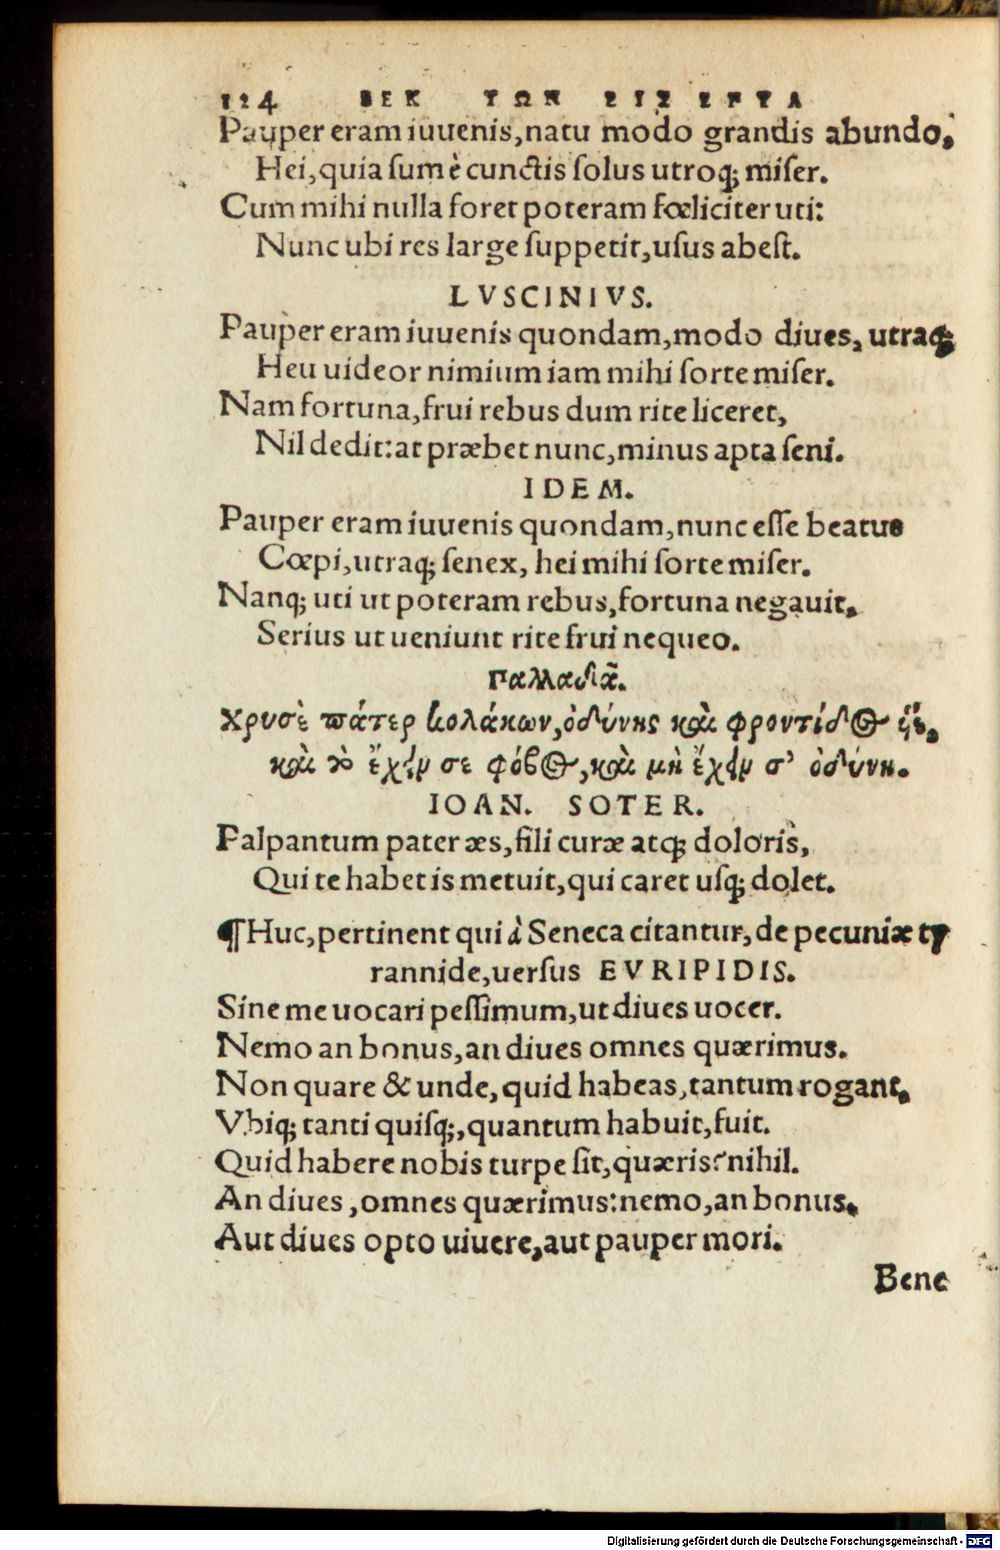 124 ΒΕΚ ΤΩΝ ΕΙΣ ΕΝΤΑ
Pauper eram iuuenis, natu modo grandis abundo,
Hei, quia sum è cunctis solus utroq; miser.
Cum mihi nulla foret poteram fœliciter uti:
Nunc ubi res large suppetit, usus abest.
LVSCINIVS.
Pauper eram iuuenis quondam, modo diues, utraq;
Heu uideor nimium iam mihi sorte miser.
Nam fortuna, frui rebus dum rite liceret,
Nil dedit: at præbet nunc, minus apta seni.
IDEM.
Pauper eram iuuenis quondam, nunc esse beatus
Cœpi, utraq; senex, hei mihi sorte miser.
Nanq; uti ut poteram rebus, fortuna negauit,
Serius ut ueniunt rite frui nequeo.
Παλλαδᾶ.
Χρυσὲ πάτερ κολάκων, ὀδύνης καὶ φροντίδος υἱὲ,
καὶ τὸ ἔχειν σε φόβος, καὶ μὴ ἔχειν σ' ὀδύνη.
IOAN. SOTER.
Palpantum pater æs, fili curæ atq; doloris,
Qui te habet is metuit, qui caret usq; dolet.
¶Huc, pertinent qui à Seneca citantur, de pecuniæ ty
rannide, uersus EVRIPIDIS.
Sine me uocari pessimum, ut diues uocer.
Nemo an bonus, an diues omnes quærimus.
Non quare & unde, quid habeas, tantum rogant,
Vbiq; tanti quisq;, quantum habuit, fuit.
Quid habere nobis turpe sit, quæris? nihil.
An diues, omnes quærimus: nemo, an bonus.
Aut diues opto uiuere, aut pauper mori.
Bene
Digitalisierung gefördert durch die Deutsche Forschungsgemeinschaft - DFG